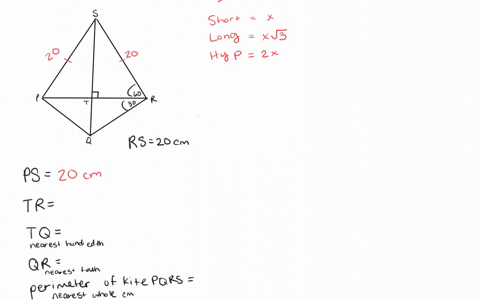 Short = x
Long = x√3
Hyp = 2x
S
20
20
P
T
60
30
R
Q
RS = 20 cm
PS = 20 cm
TR =
TQ =
nearest hundredth
QR =
nearest tenth
perimeter of kite PQRS =
nearest whole cm